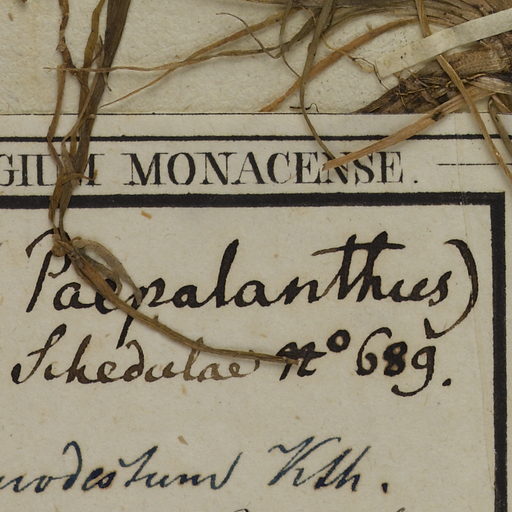 MONACENSE.
Paepalanthus)
Schedulae no 689.
modestum Kth.